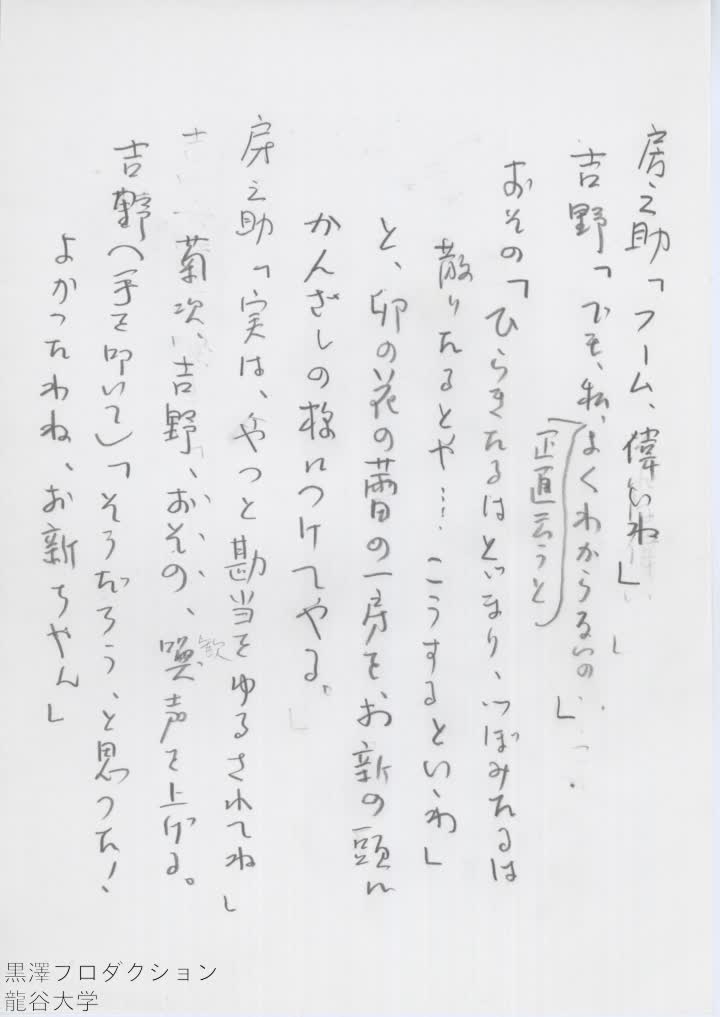 房之助「フーム、偉いね」
吉野「でも、私、よくわからないの」
(正直云うと)
おその「ひらきたるはとどまり、つぼみたるは
散りたるとや… こうするといゝわ」
と、卯の花の蕾の一房を、お新の頭に
かんざしの様につけてやる。
房之助「実は、やつと勘当をゆるされてね」
菊次、吉野、おその、歓声を上げる。
吉野(手を叩いて)「そうだろう、と思つた!
よかつたわね、お新ちやん」
黒澤プロダクション
龍谷大学